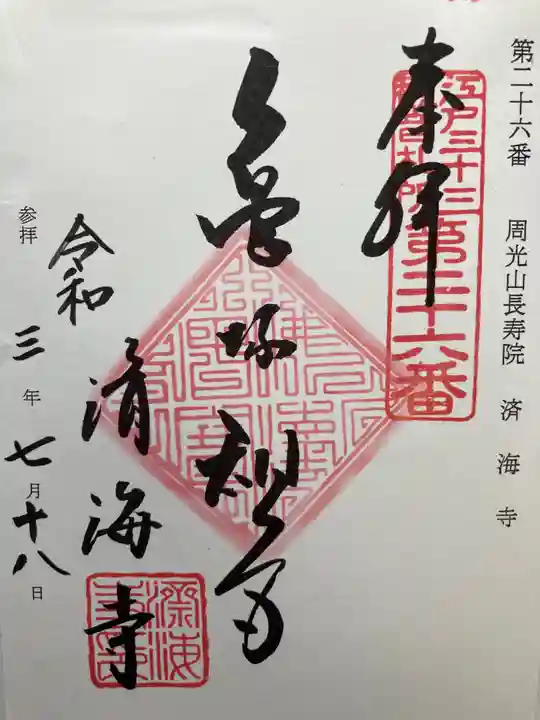 第二十六番 周光山長寿院 済海寺
江戸三十三
観音札所
第二十六番
奉拝
亀塚観音
済海寺
済海
令和三年七月十八日
参拝